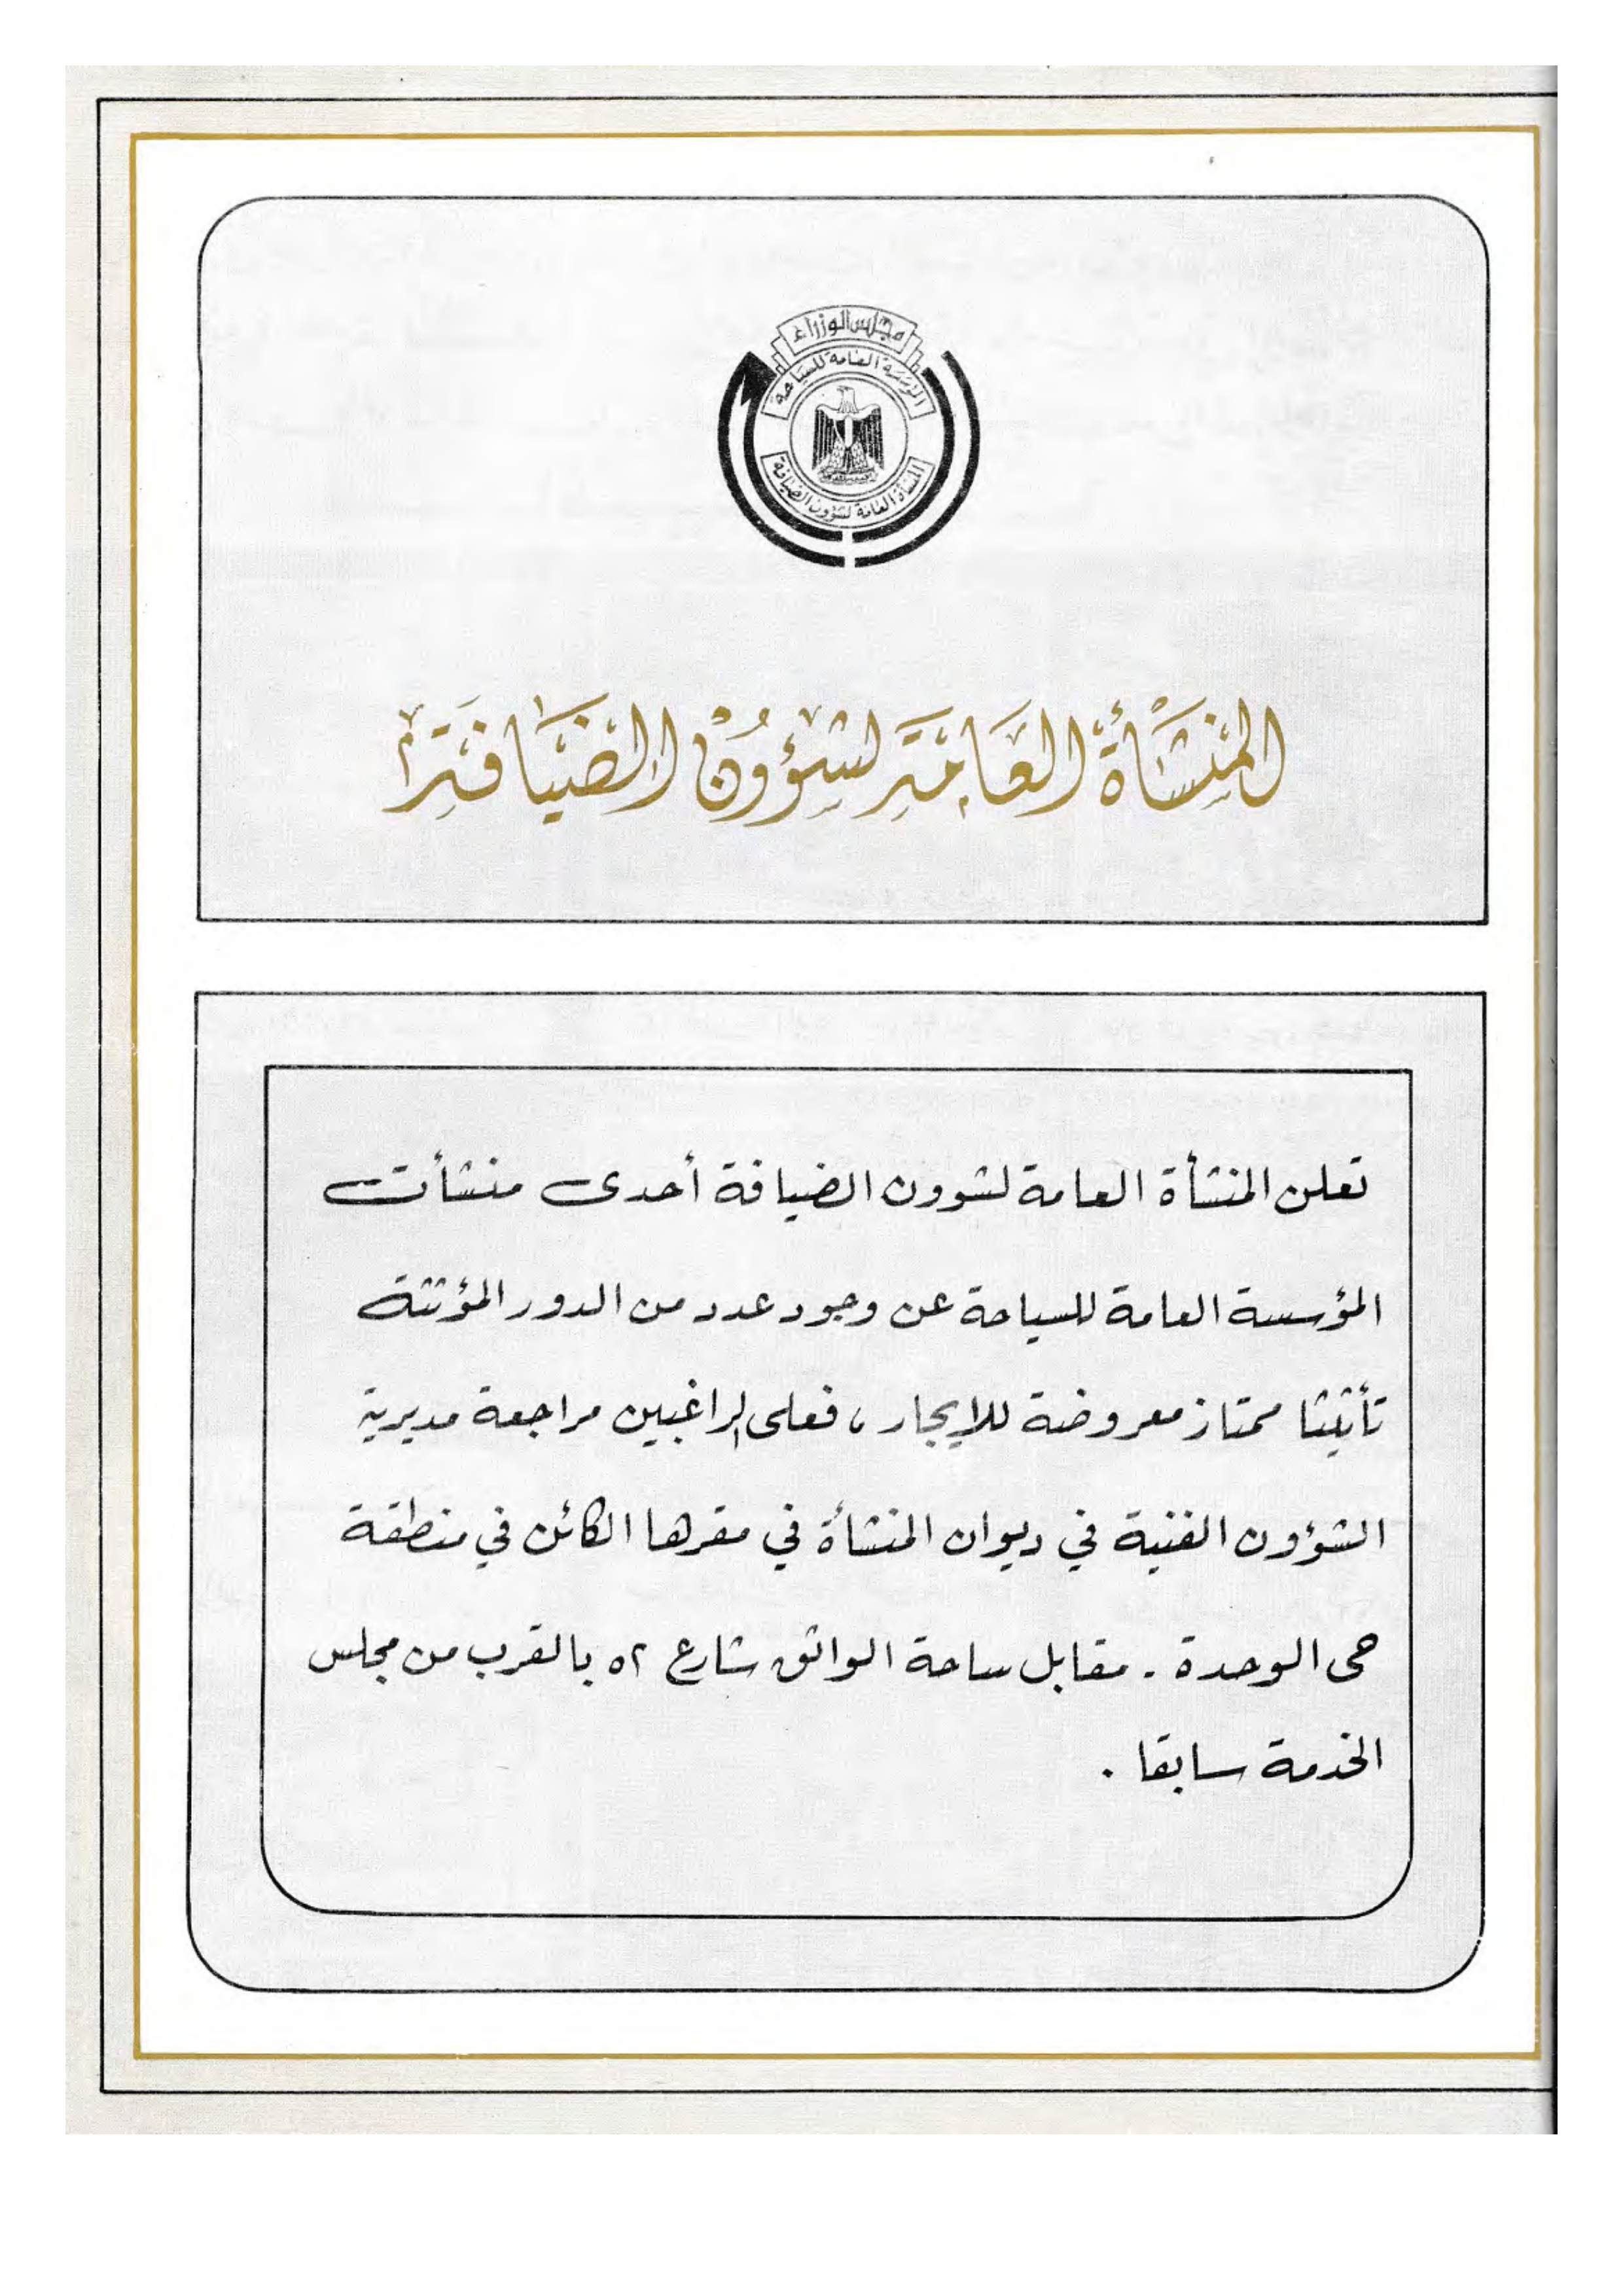 مجلس الوزراء
المؤسسة العامة للسياحة
المنشأة العامة لشؤون الضيافة
المنشأة العامة لشؤون الضيافة
تعلن المنشأة العامة لشوون الضيافة أحدى منشأت
المؤسسة العامة للسياحة عن وجود عدد من الدور المؤثثة
تأثيثا ممتاز معروضة للإيجار، فعلى الراغبين مراجعة مديرية
الشؤون الفنية في ديوان المنشأة في مقرها الكائن في منطقة
حى الوحدة - مقابل ساحة الواثق شارع ٥٢ بالقرب من مجلس
الخدمة سابقا .